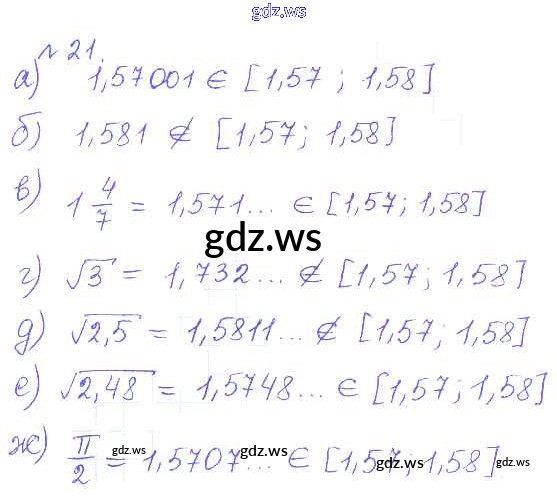 gdz.ws
№ 21.
а) 1,57001 ∈ [1,57 ; 1,58]
б) 1,581 ∉ [1,57; 1,58]
в) 1 4/7 = 1,571... ∈ [1,57; 1,58]
gdz.ws
г) √3 = 1,732... ∉ [1,57; 1,58]
д) √2,5 = 1,5811... ∉ [1,57; 1,58]
е) √2,48 = 1,5748... ∈ [1,57; 1,58]
ж) π/2 = 1,5707... ∈ [1,57; 1,58]
gdz.ws gdz.ws gdz.ws
gdz.ws gdz.ws
gdz.ws